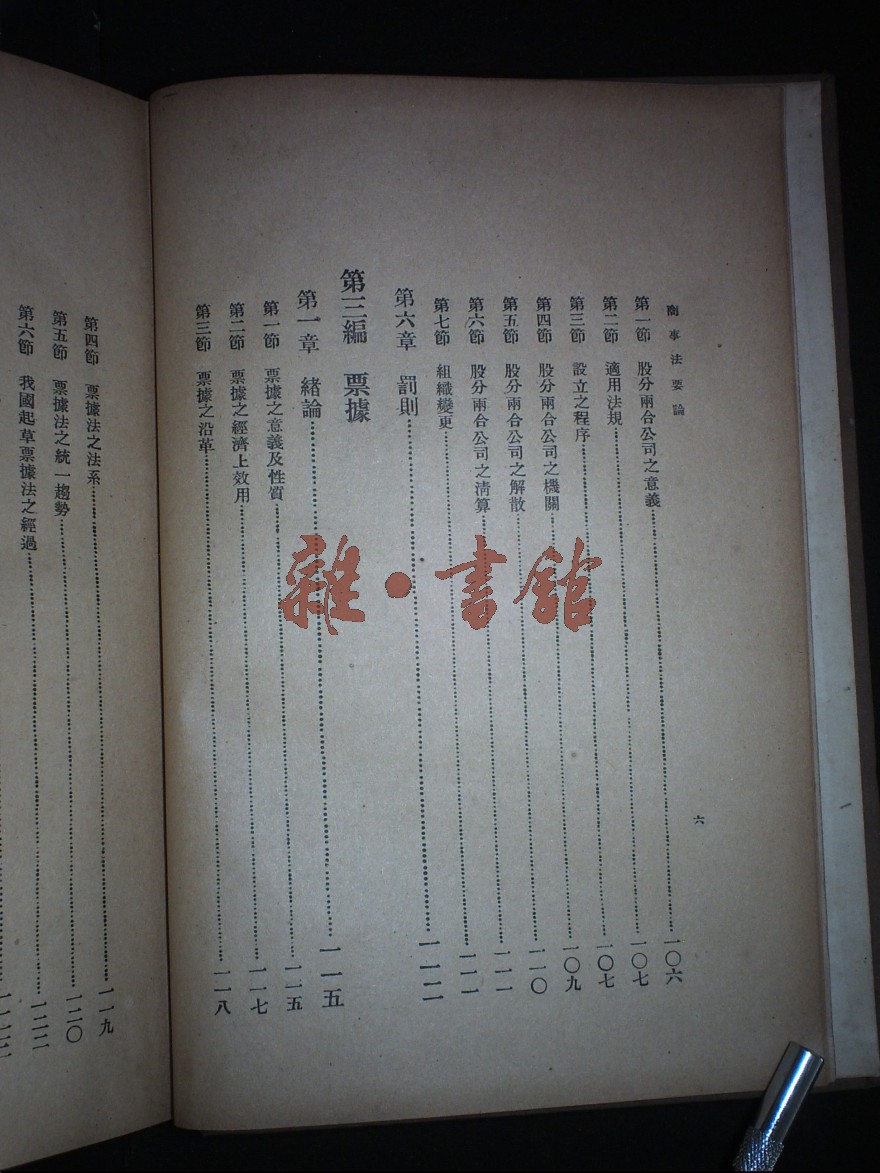 商事法要論
六
第一節 股分兩合公司之意義……一〇六
第二節 適用法規……一〇七
第三節 設立之程序……一〇七
第四節 股分兩合公司之機關……一〇九
第五節 股分兩合公司之解散……一一〇
第六節 股分兩合公司之清算……一一一
第七節 組織變更……一一一
第六章 罰則……一一二
第三編 票據
第一章 緒論……一一五
第一節 票據之意義及性質……一一五
第二節 票據之經濟上效用……一一七
第三節 票據之沿革……一一八
第四節 票據法之法系……一一九
第五節 票據法之統一趨勢……一二〇
第六節 我國起草票據法之經過……一二二
雜·書館